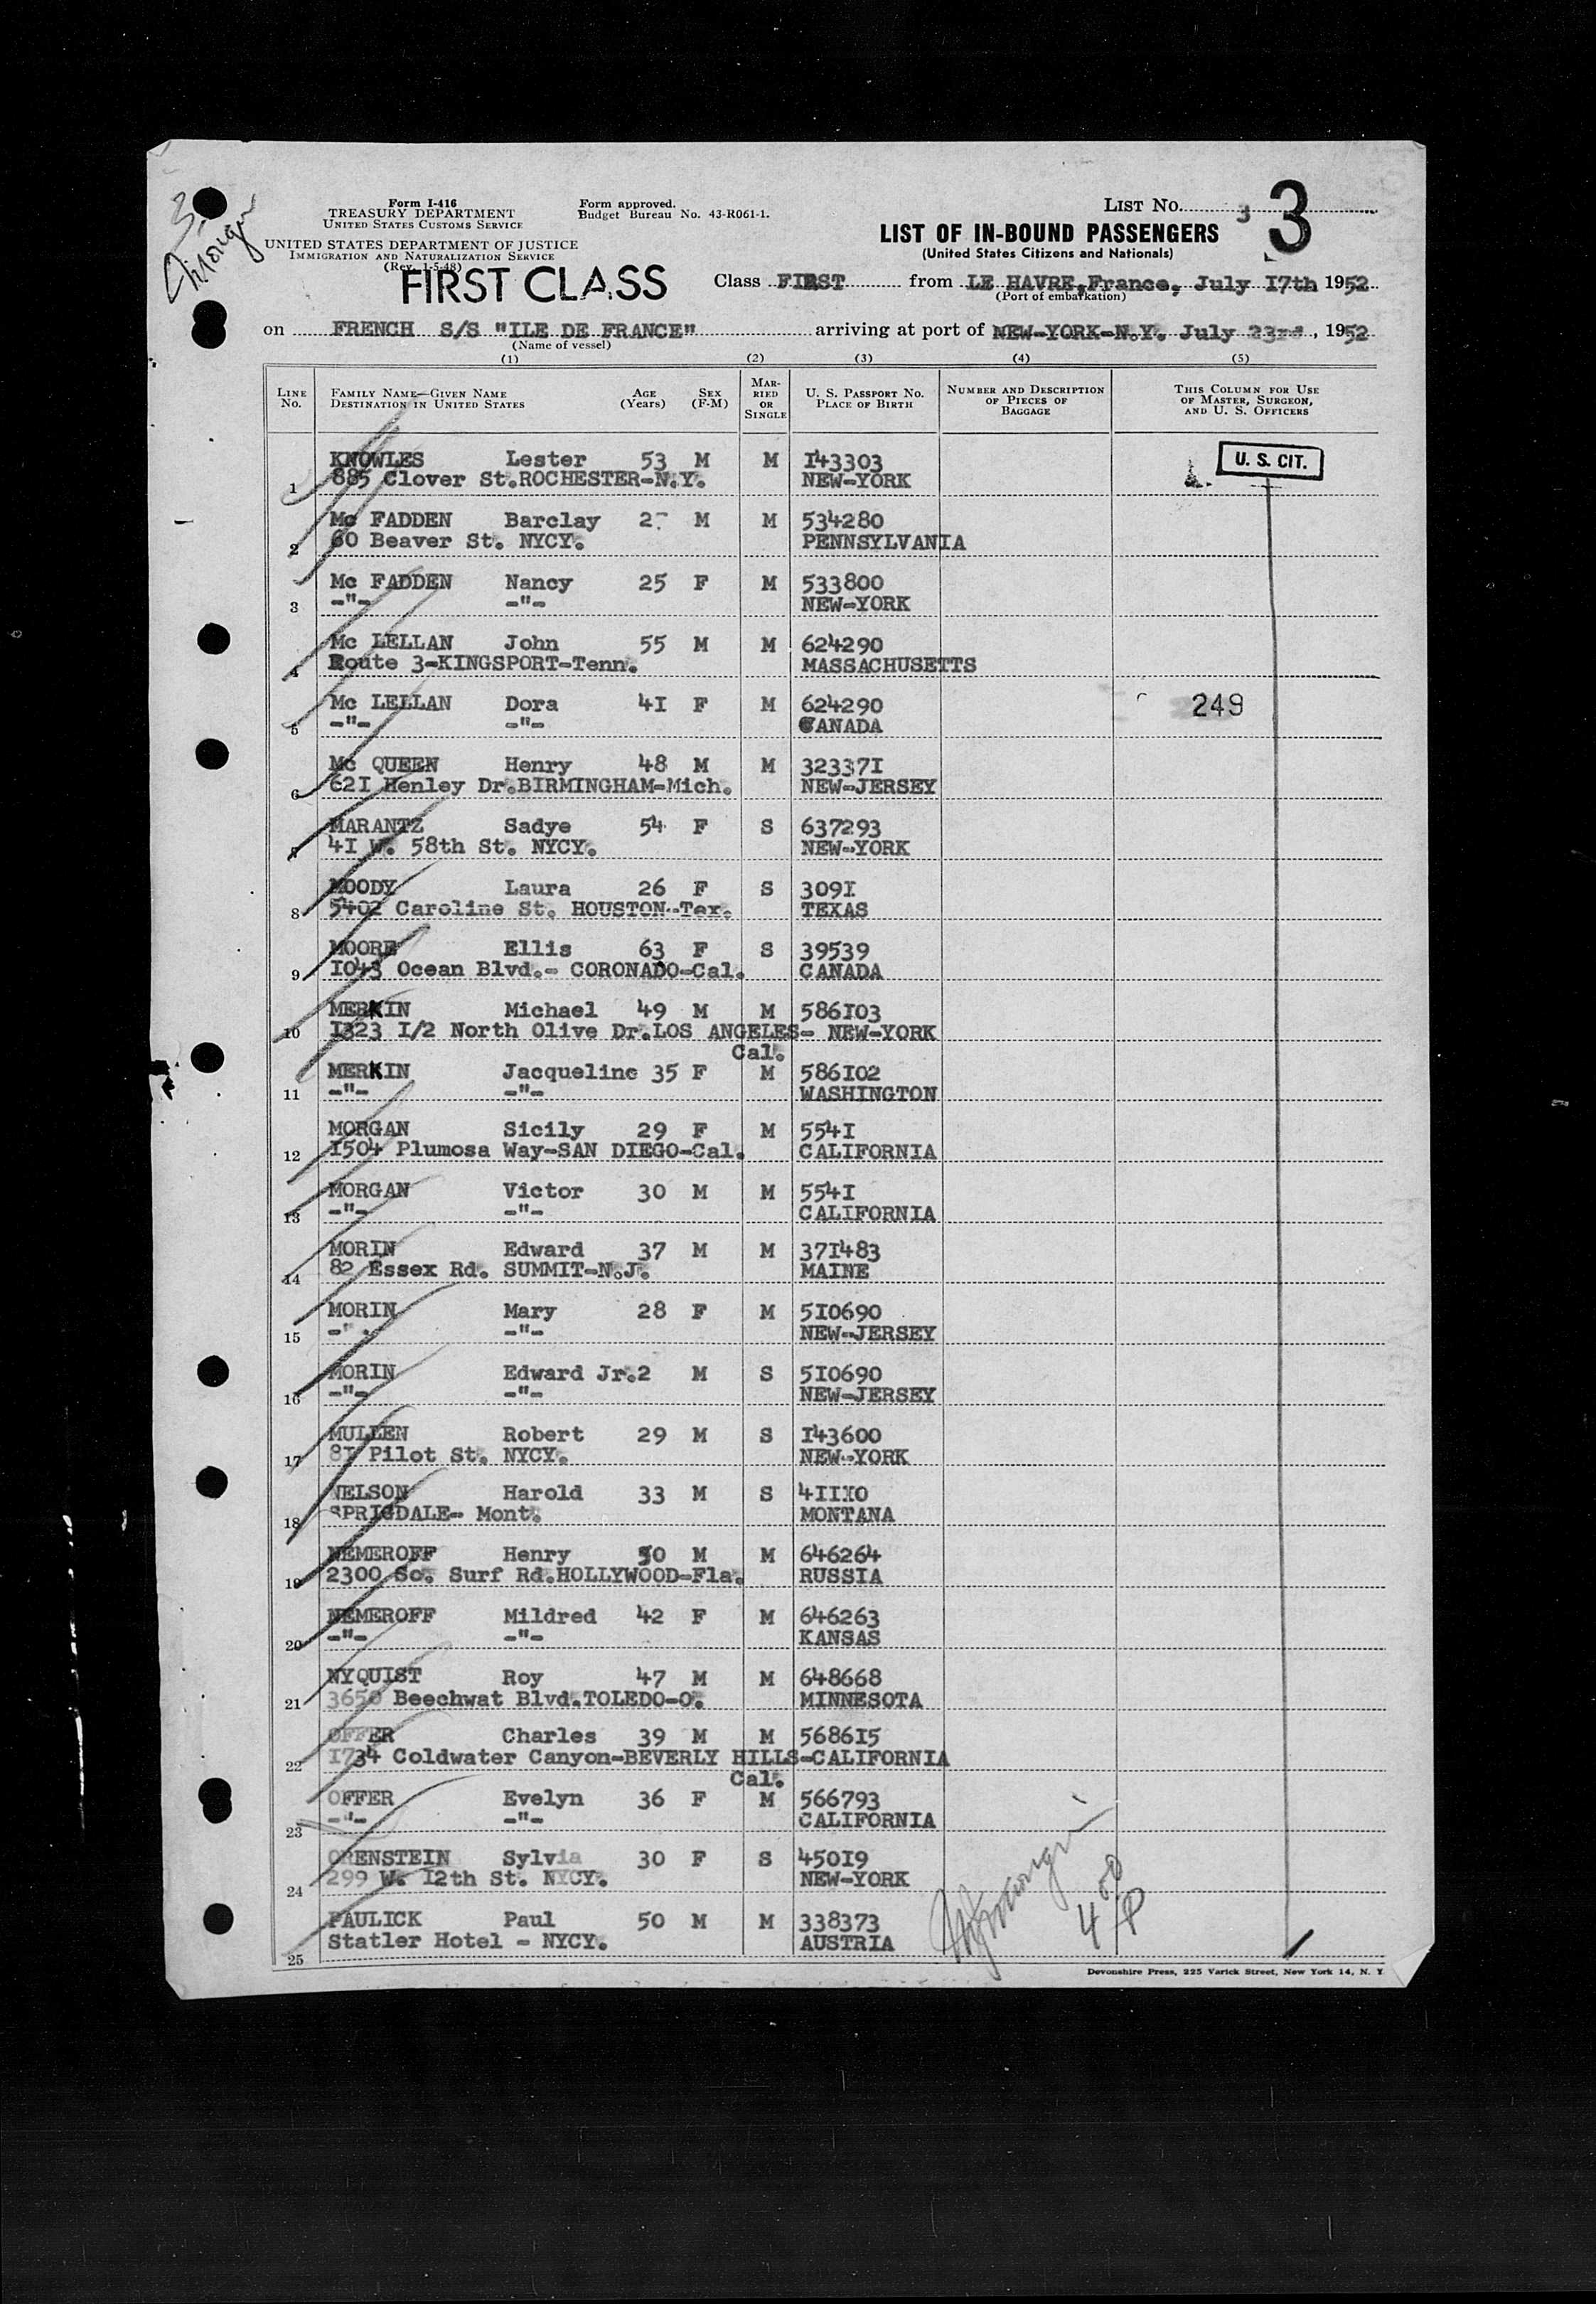 Form I-416
TREASURY DEPARTMENT
UNITED STATES CUSTOMS SERVICE
UNITED STATES DEPARTMENT OF JUSTICE
IMMIGRATION AND NATURALIZATION SERVICE
(Rev. 1-5-48)
Form approved.
Budget Bureau No. 43-R061-1.
LIST NO. 3 3
LIST OF IN-BOUND PASSENGERS
(United States Citizens and Nationals)
FIRST CLASS
Class FIRST from LE HAVRE,France, July I7th 1952
(Port of embarkation)
on FRENCH S/S "ILE DE FRANCE" arriving at port of NEW-YORK-N.Y. July 23rd, 1952
(Name of vessel)
(1) (2) (3) (4) (5)
LINE NO. FAMILY NAME—GIVEN NAME DESTINATION IN UNITED STATES AGE (Years) SEX (F-M) MARRIED OR SINGLE U. S. PASSPORT NO. PLACE OF BIRTH NUMBER AND DESCRIPTION OF PIECES OF BAGGAGE THIS COLUMN FOR USE OF MASTER, SURGEON, AND U. S. OFFICERS
KNOWLES Lester 53 M M I43303 U. S. CIT.
1 885 Clover St.ROCHESTER-N.Y. NEW-YORK
Mc FADDEN Barclay M M 534280
2 60 Beaver St. NYCY. PENNSYLVANIA
Mc FADDEN Nancy 25 F M 533800
3 -"- -"- NEW-YORK
Mc LELLAN John 55 M M 624290
4 Route 3-KINGSPORT-Tenn. MASSACHUSETTS
Mc LELLAN Dora 4I F M 624290 249
5 -"- -"- CANADA
Mc QUEEN Henry 48 M M 32337I
6 62I Henley Dr.BIRMINGHAM-Mich. NEW-JERSEY
MARANTZ Sadye 54 F S 637293
7 4I W. 58th St. NYCY. NEW-YORK
MOODY Laura 26 F S 309I
8 5402 Caroline St. HOUSTON-Tex. TEXAS
MOORE Ellis 63 F S 39539
9 I043 Ocean Blvd.- CORONADO-Cal. CANADA
MERKIN Michael 49 M M 586I03
10 I323 I/2 North Olive Dr.LOS ANGELES- NEW-YORK
Cal.
MERKIN Jacqueline 35 F M 586I02
11 -"- -"- WASHINGTON
MORGAN Sicily 29 F M 554I
12 I504 Plumosa Way-SAN DIEGO-Cal. CALIFORNIA
MORGAN Victor 30 M M 554I
13 -"- -"- CALIFORNIA
MORIN Edward 37 M M 37I483
14 82 Essex Rd. SUMMIT-N.J. MAINE
MORIN Mary 28 F M 5I0690
15 -"- -"- NEW-JERSEY
MORIN Edward Jr.2 M S 5I0690
16 -"- -"- NEW-JERSEY
MULLEN Robert 29 M S I43600
17 8I Pilot St. NYCY. NEW-YORK
NELSON Harold 33 M S 4IIIO
18 SPRIGDALE- Mont. MONTANA
NEMEROFF Henry 50 M M 646264
19 2300 So. Surf Rd.HOLLYWOOD-Fla. RUSSIA
NEMEROFF Mildred 42 F M 646263
20 -"- -"- KANSAS
NYQUIST Roy 47 M M 648668
21 3650 Beechwat Blvd.TOLEDO-O. MINNESOTA
OFFER Charles 39 M M 5686I5
22 I734 Coldwater Canyon-BEVERLY HILLS-CALIFORNIA
Cal.
OFFER Evelyn 36 F M 566793
23 -"- -"- CALIFORNIA
ORENSTEIN Sylvia 30 F S 450I9
24 299 W. I2th St. NYCY. NEW-YORK
PAULICK Paul 50 M M 338373
25 Statler Hotel - NYCY. AUSTRIA
Devonshire Press, 225 Varick Street, New York 14, N. Y.